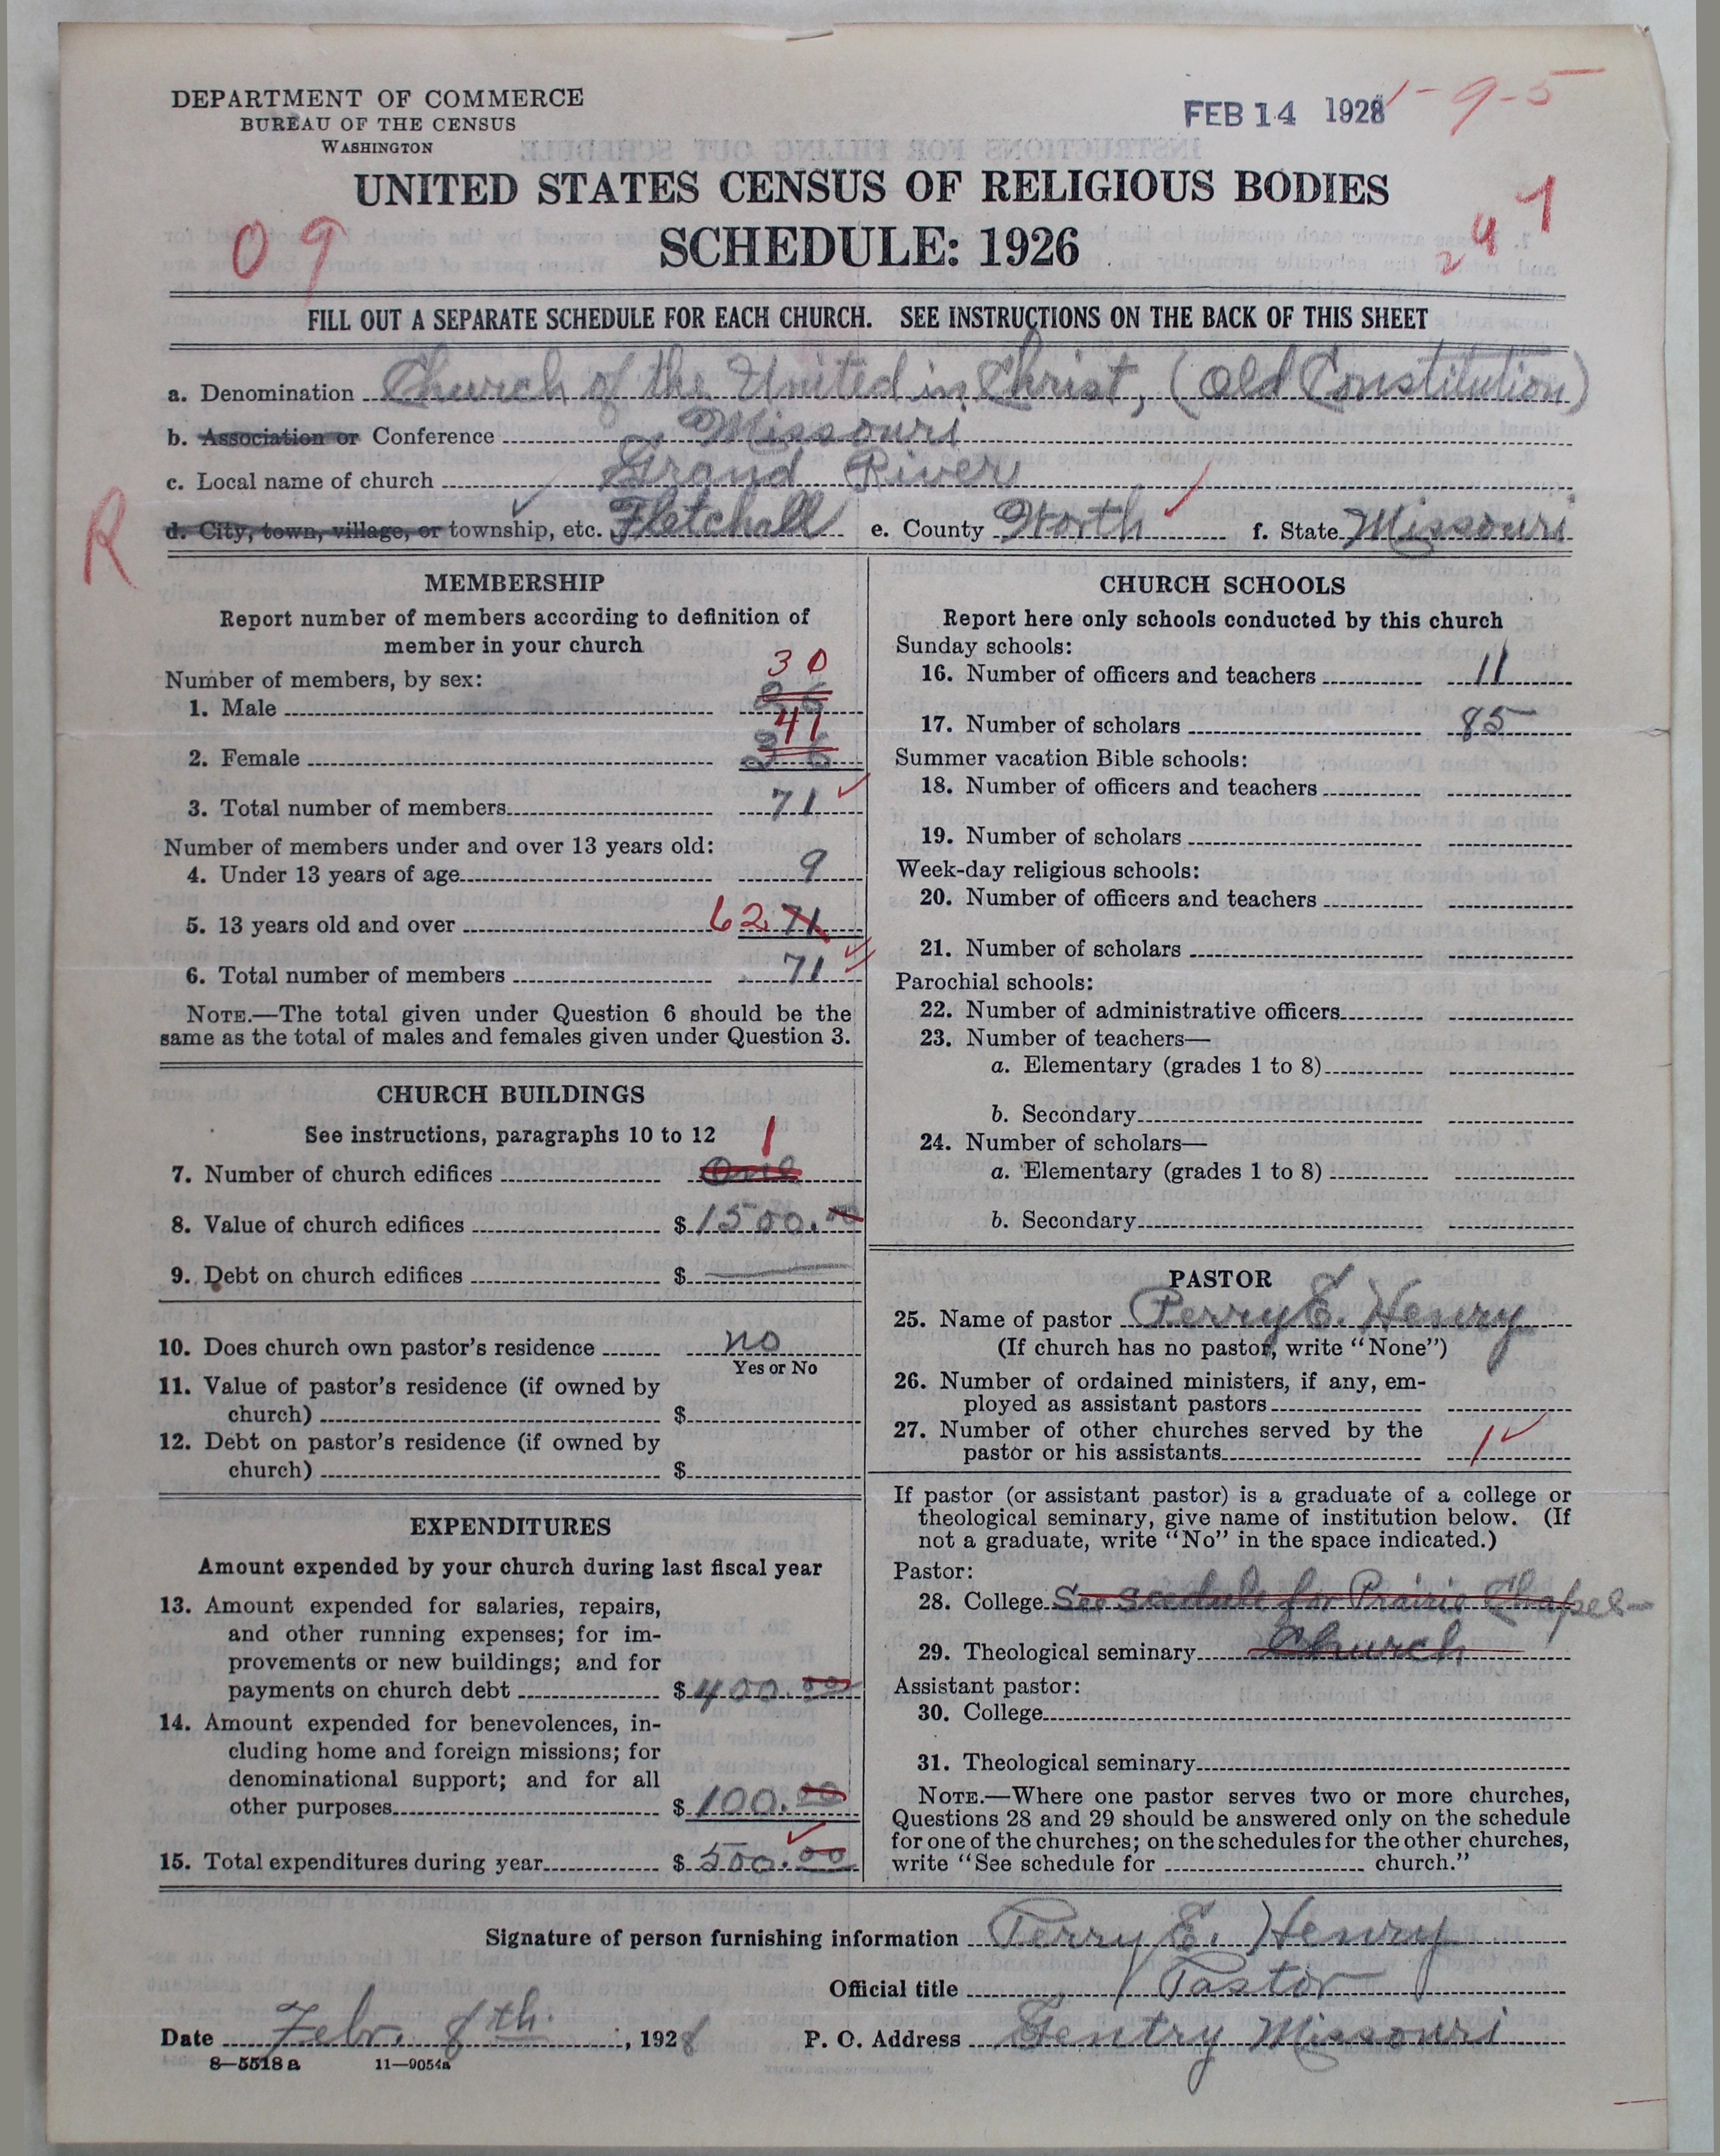 DEPARTMENT OF COMMERCE
BUREAU OF THE CENSUS
WASHINGTON
FEB 14 1928
1-9-5
UNITED STATES CENSUS OF RELIGIOUS BODIES
SCHEDULE: 1926
09
24 7
FILL OUT A SEPARATE SCHEDULE FOR EACH CHURCH. SEE INSTRUCTIONS ON THE BACK OF THIS SHEET
a. Denomination Church of the United in Christ, (Old Constitution)
b. Association or Conference Missouri
c. Local name of church Grand River
R
d. City, town, village, or township, etc. Fletchall e. County Worth f. State Missouri
MEMBERSHIP
Report number of members according to definition of
member in your church
Number of members, by sex:
30
1. Male
41
2. Female 36
3. Total number of members 71
Number of members under and over 13 years old:
4. Under 13 years of age 9
5. 13 years old and over 62 71
6. Total number of members 71
NOTE.—The total given under Question 6 should be the
same as the total of males and females given under Question 3.
CHURCH BUILDINGS
See instructions, paragraphs 10 to 12
1
7. Number of church edifices One
8. Value of church edifices $ 1500.00
9. Debt on church edifices $
10. Does church own pastor's residence no
Yes or No
11. Value of pastor's residence (if owned by
church) $
12. Debt on pastor's residence (if owned by
church) $
EXPENDITURES
Amount expended by your church during last fiscal year
13. Amount expended for salaries, repairs,
and other running expenses; for im-
provements or new buildings; and for
payments on church debt $ 400.00
14. Amount expended for benevolences, in-
cluding home and foreign missions; for
denominational support; and for all
other purposes $ 100.00
15. Total expenditures during year $ 500.00
CHURCH SCHOOLS
Report here only schools conducted by this church
Sunday schools:
16. Number of officers and teachers 11
17. Number of scholars 85
Summer vacation Bible schools:
18. Number of officers and teachers
19. Number of scholars
Week-day religious schools:
20. Number of officers and teachers
21. Number of scholars
Parochial schools:
22. Number of administrative officers
23. Number of teachers—
a. Elementary (grades 1 to 8)
b. Secondary
24. Number of scholars—
a. Elementary (grades 1 to 8)
b. Secondary
PASTOR
25. Name of pastor Perry E. Henry
(If church has no pastor, write "None")
26. Number of ordained ministers, if any, em-
ployed as assistant pastors
27. Number of other churches served by the
pastor or his assistants 1
If pastor (or assistant pastor) is a graduate of a college or
theological seminary, give name of institution below. (If
not a graduate, write "No" in the space indicated.)
Pastor:
28. College See scedule for Prairie Chapel
29. Theological seminary Church
Assistant pastor:
30. College
31. Theological seminary
NOTE.—Where one pastor serves two or more churches,
Questions 28 and 29 should be answered only on the schedule
for one of the churches; on the schedules for the other churches,
write "See schedule for church."
Signature of person furnishing information Perry E. Henry
Official title Pastor
Date Febr. 8th. , 1928 P. O. Address Gentry Missouri
8—5518 a 11—9054a